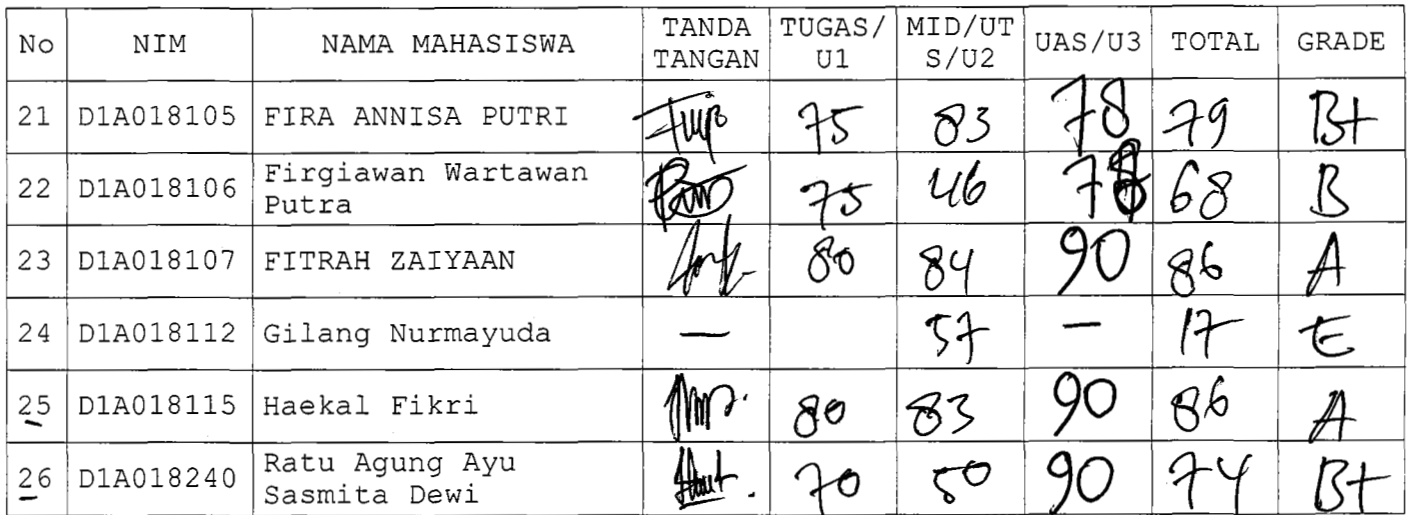 No NIM NAMA MAHASISWA TANDA TANGAN TUGAS/U1 MID/UTS/U2 UAS/U3 TOTAL GRADE
21 D1A018105 FIRA ANNISA PUTRI 75 83 78 79 B+
22 D1A018106 Firgiawan Wartawan Putra 75 46 78 68 B
23 D1A018107 FITRAH ZAIYAAN 80 84 90 86 A
24 D1A018112 Gilang Nurmayuda — 57 — 17 E
25 D1A018115 Haekal Fikri 80 83 90 86 A
26 D1A018240 Ratu Agung Ayu Sasmita Dewi 70 50 90 74 B+